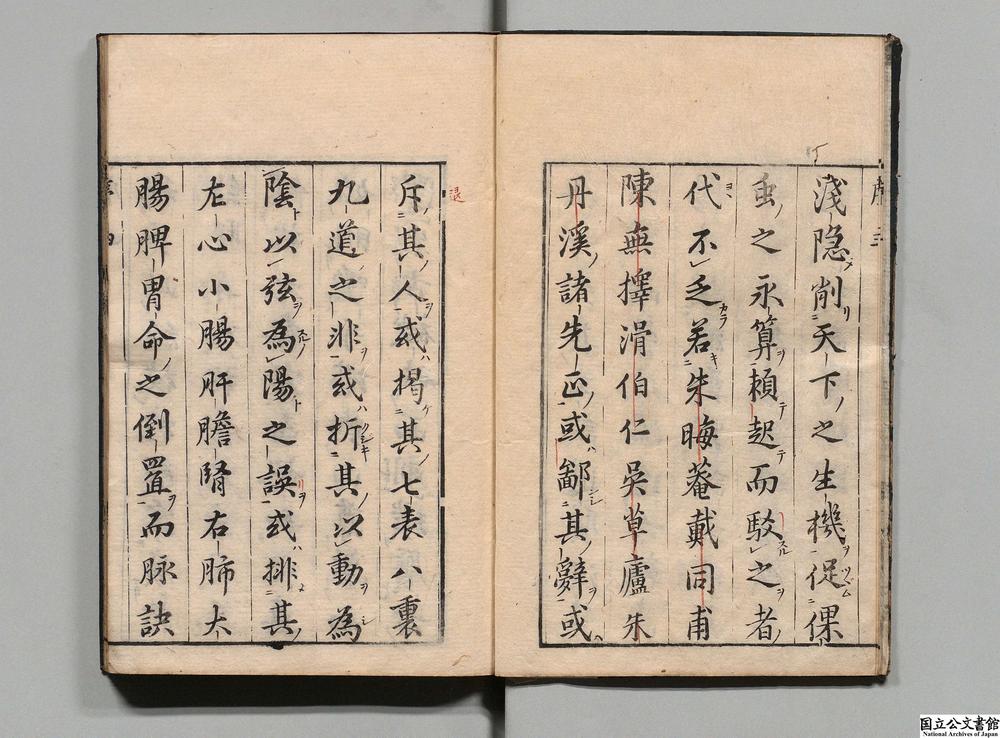 淺隐削天下之生機促倮
虫之永算頼起而駁之者
代不乏若朱晦菴戴同甫
陳無擇滑伯仁吳草廬朱
丹溪諸先正或鄙其辭或
斥其人或掲其七表八裏
九道之非或折其以動為
陰以弦為陽之誤或排其
左心小腸肝膽腎右肺大
腸脾胃命之倒置而脉訣
国立公文書館
National Archives of Japan